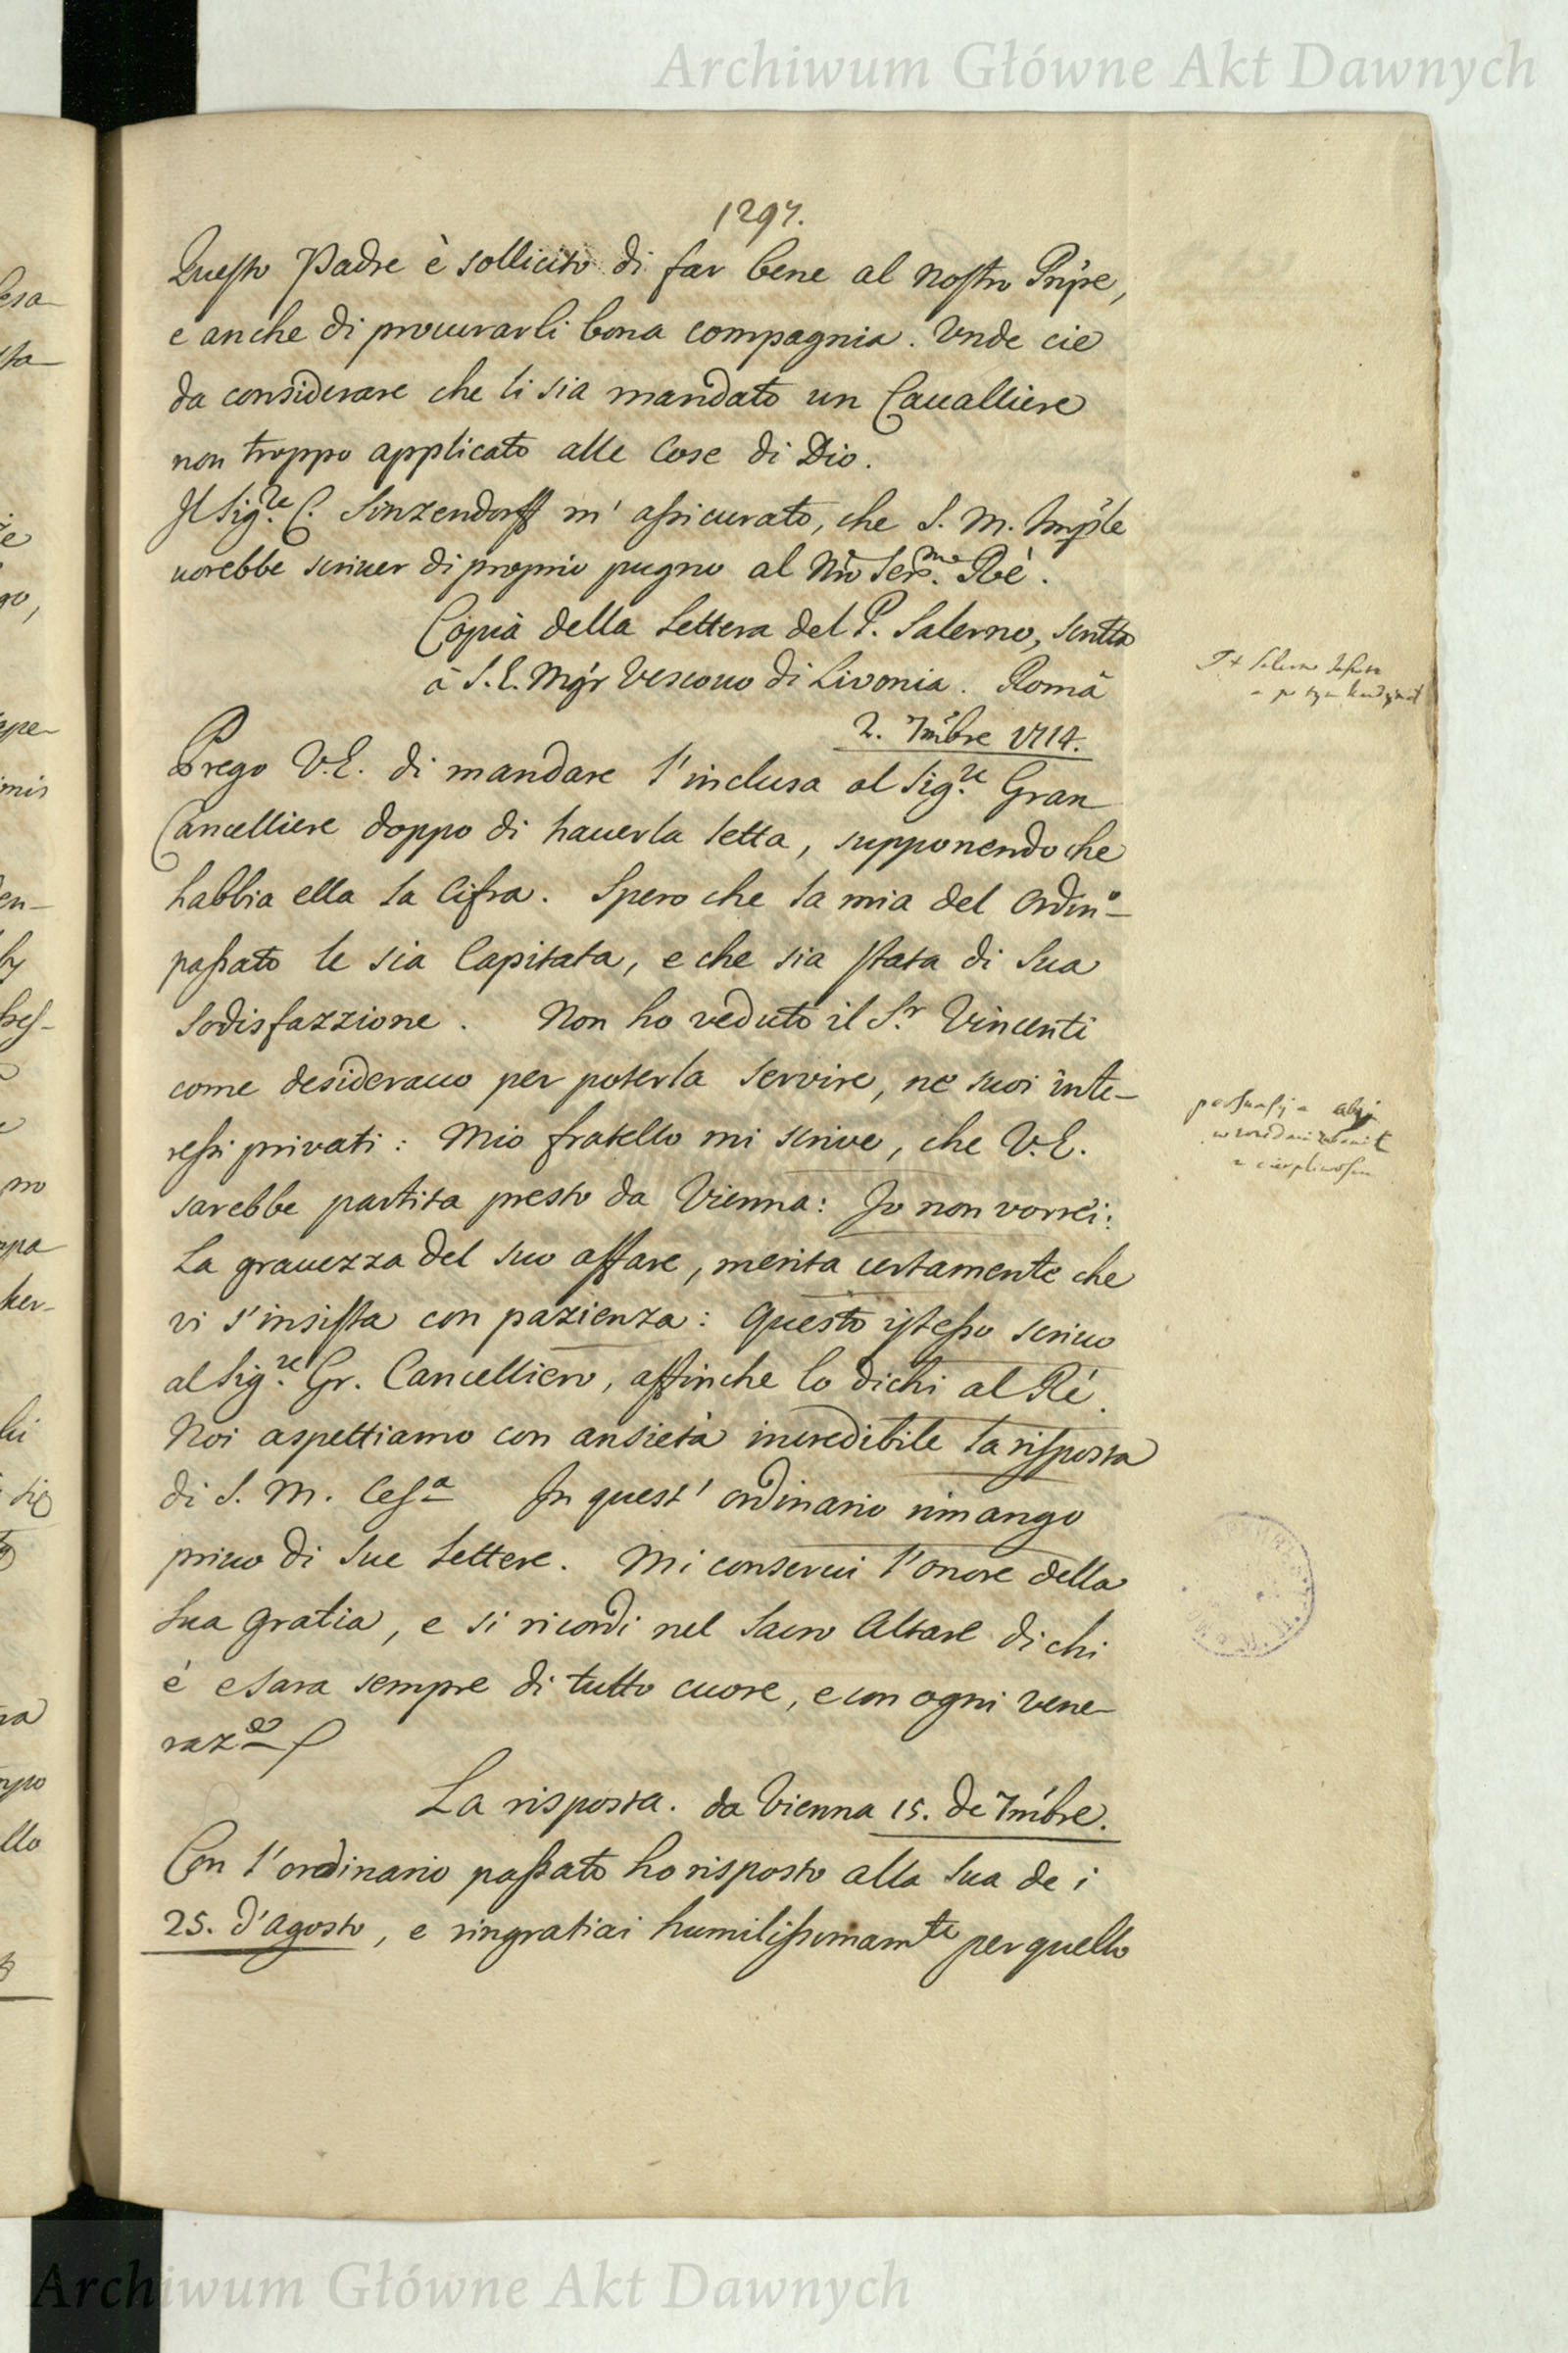 Archiwum Główne Akt Dawnych
1297.
Questo Padre è sollicito di far bene al nostro Pripe,
e anche di procurarli bona compagnia. Unde cie
da considerare che li sia mandato un Cavalliere
non troppo applicato alle Cose di Dio.
Il Sig.re C. Sinzendorff m' assicurato, che S. M. Imple
uorebbe scriuer di proprio pugno al Nro Ser.mo Rè.
Copia della Lettera del P. Salerno, scritta
à S. E. Mgr Vescouo di Livonia. Roma
2. 7mbre 1714.
Prego V.E. di mandare l'inclusa al Sig.re Gran
Cancelliere doppo di hauerla letta, supponendo che
habbia ella la Cifra. Spero che la mia del Ordin.o
passato le sia Capitata, e che sia stata di Sua
sodisfazzione. Non ho veduto il S.r Vincenti
come desiderauo per poterla servire, ne suoi inte-
ressi privati: Mio fratello mi scrive, che V.E.
sarebbe partita presto da Vienna: Io non vorrei:
La grauezza del suo affare, merita certamente che
vi s'insista con pazienza: Questo istesso scriuo
al Sig.re Gr. Cancelliero, affinche lo dichi al Rè.
Noi aspettiamo con ansietà incredibile la risposta
di S. M. Ces.a In quest' ordinario rimango
priuo di Sue Lettere. Mi conserui l'onore della
Sua gratia, e si ricordi nel Sacro Altare di chi
è e sara sempre di tutto cuore, e con ogni vene-
raz.e
La risposta. da Vienna 15. de 7mbre.
Con l'ordinario passato ho risposto alla Sua de i
25. d'Agosto, e ringratiai humilissimam.te per quello
Archiwum Główne Akt Dawnych